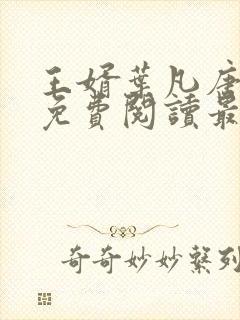 王婿葉凡唐
免費閱讀最
奇奇妙妙繫列